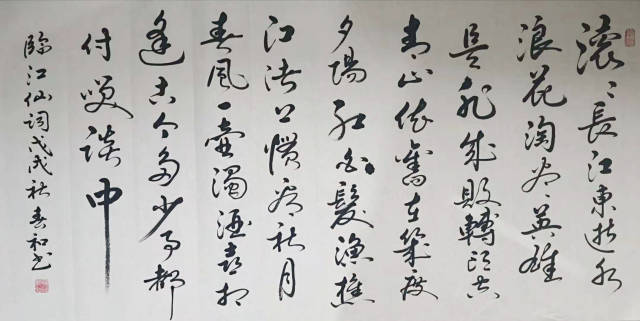 滚〻長江東逝水
浪花淘尽英雄
是非成敗轉頭空
青山依舊在幾度
夕陽红白髮漁樵
江渚上惯看秋月
春風一壺濁酒喜相
逢古今多少事都
付咲談中
臨江仙詞戊戌秋春和书